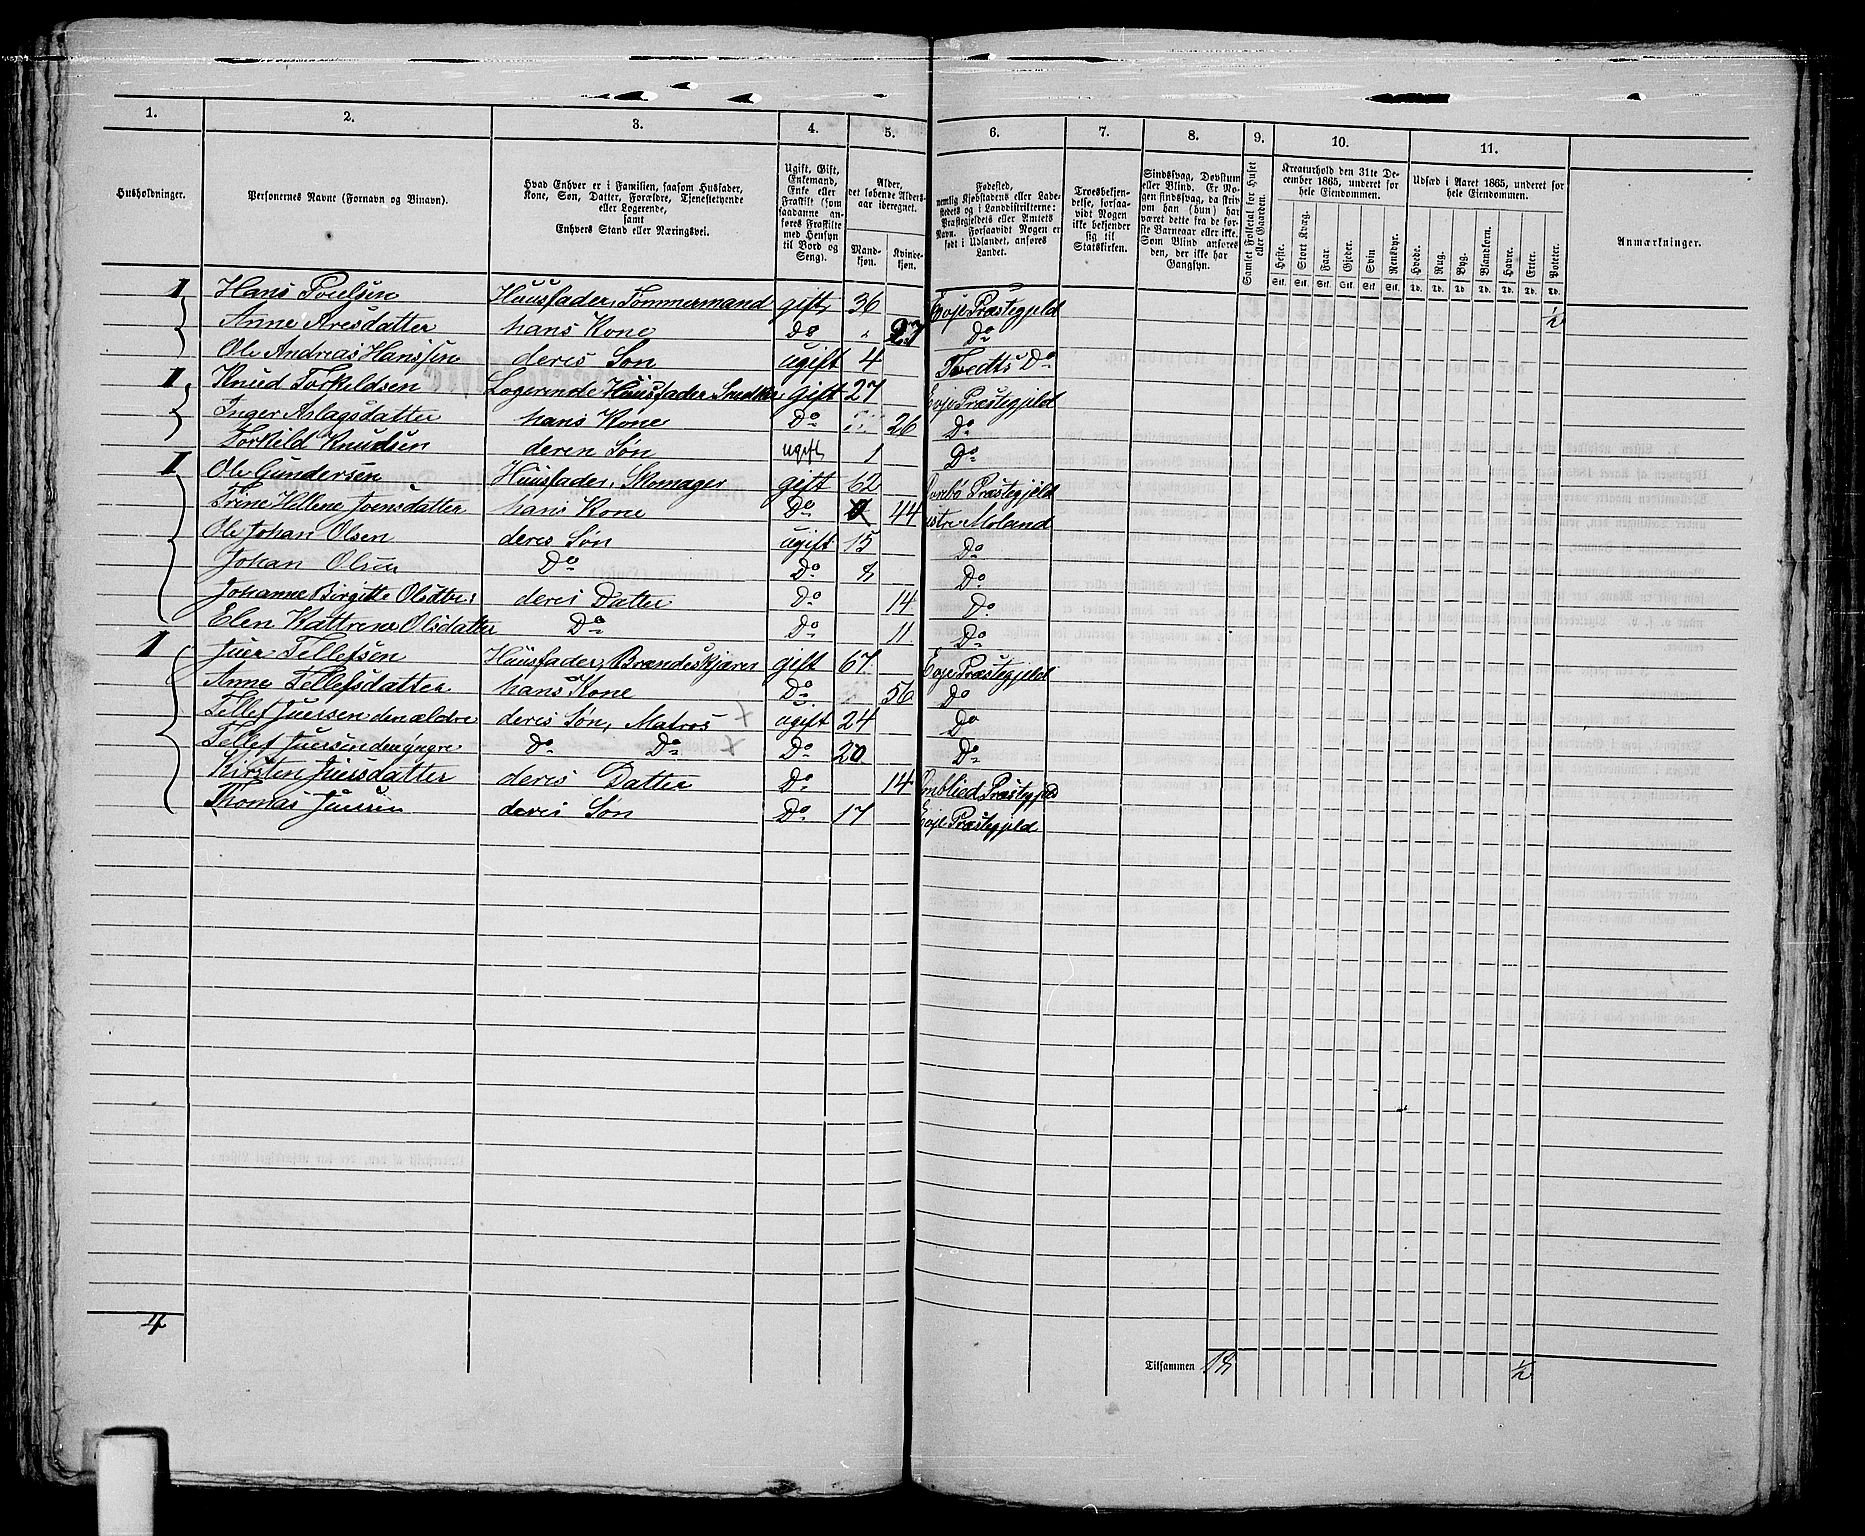 1. 2. 3. 4. 5. 6. 7. 8. 9. 10. 11.
Husholdninger.
Personernes Navne (Fornavn og Binavn).
Hvad Enhver er i Familien, saasom Husfader,
Kone, Søn, Datter, Forældre, Tjenestetyende
eller Logerende,
samt
Enhvers Stand eller Næringsvei.
Ugift, Gift,
Enkemand,
Enke eller
Fraskilt (som
saadanne an-
føres Fraskilte
med Hensyn
til Bord og
Seng).
Alder,
det løbende Alders-
aar iberegnet.
Mand-
kjøn.
Kvinde-
kjøn.
Fødested,
nemlig Kjøbstadens eller Lade-
stedets og i Landdistrikterne:
Præstegjeldets eller Amtets
Navn. Forsaavidt Nogen er
født i Udlandet, anføres
Landet.
Troesbekjen-
delse, forsaa-
vidt Nogen
ikke bekjender
sig til
Statskirken.
Sindssvag, Døvstum
eller Blind. Er No-
gen sindssvag, da skriv
om han (hun) har
været dette fra de før-
ste Barneaar eller ikke.
Som Blind anføres
den, der ikke har
Gangsyn.
Samlet Folketal for Huset
eller Gaarden.
Kreaturhold den 31te De-
cember 1865, underet for
hele Eiendommen.
Heste. Stort Kvæg. Faar. Gjeder. Svin Rensdyr.
Stk. Stk. Stk. Stk. Stk. Stk.
Udsæd i Aaret 1865, underet for
hele Eiendommen.
Hvede. Rug. Byg. Blandkorn. Havre. Erter. Poteter.
Td. Td. Td. Td. Td. Td. Td.
Anmærkninger.
1 Hans Poulsen Huusfader, Tømmermand gift 36 Evje Præstegjeld ½
Anne Aresdatter hans Kone Do 27 Do
Ole Andreas Hanssen deres Søn ugift 4 Tvedts Do
1 Knud Torkildsen Logerende Huusfader Snedker gift 27 Evje Præstegjeld
Inger Aslagsdatter hans Kone Do 26 Do
Torkild Knudsen deren Søn ugift 1 Do
1 Ole Gundersen Huusfader, Skomager gift 62 Præstegjeld
Trine Hellene Joensdatter hans Kone Do 44 Østre Moland
Ole Johan Olsen deres Søn ugift 15 Do
Johan Olsen Do Do 8 Do
Johanne Birgitte Olsdtr: deres Datter Do 14 Do
Elen Kattrene Olsdatter Do Do 11 Do
1 Juer Tellefsen Huusfader, Brændeskjærer gift 67 Evje Præstegjeld
Anne Tellefsdatter hans Kone Do 56 Do
Tellef Juersen den ældre deres Søn, Matros ugift 24 Do
Tellef Juersen den yngre Do Do Do 20 Do
Kirsten Juersdatter deres Datter Do 14 Præstegjeld
Thomas Juersen deres Søn Do 17 Evje Præstegjeld
4
Tilsammen 18 ½